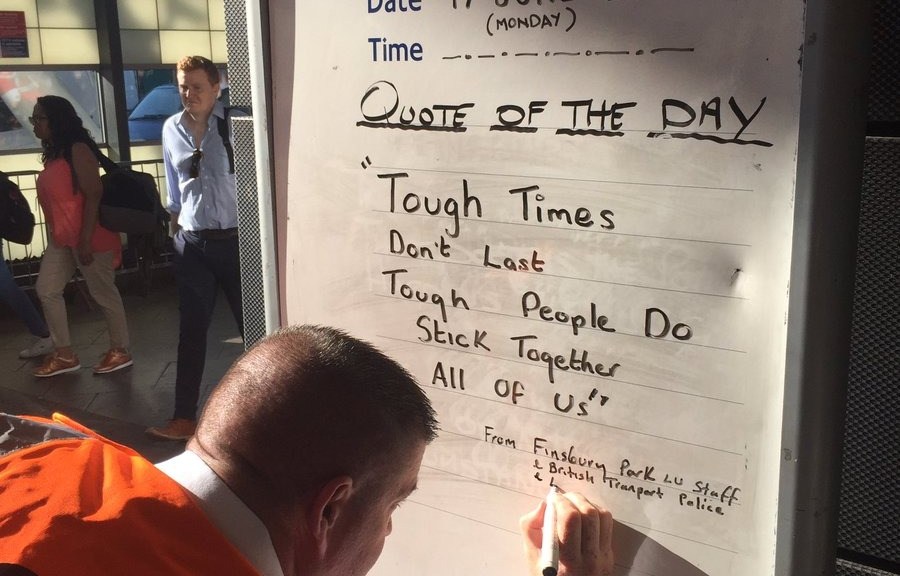 Date
(MONDAY)
Time
QUOTE OF THE DAY
"Tough Times
Don't Last
Tough People Do
Stick Together
All Of Us"
From Finsbury Park LU Staff
& British Tranport Police
&